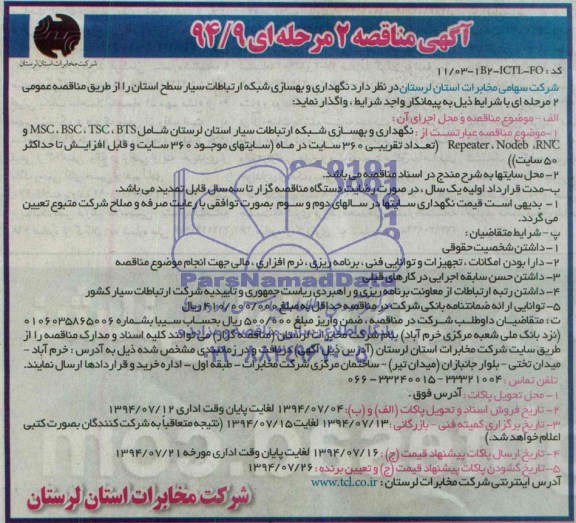 آگهی مناقصه ۲ مرحله ای ۹۴/۹
شرکت مخابرات استان لرستان
کد: 11/03-1B2-ICTL-FO
شرکت سهامی مخابرات استان لرستان در نظر دارد نگهداری و بهسازی شبکه ارتباطات سیار سطح استان را از طریق مناقصه عمومی
۲ مرحله ای با شرایط ذیل به پیمانکار واجد شرایط ، واگذار نماید:
الف - موضوع مناقصه و محل اجرای آن:
۱- موضوع مناقصه عبارتست از: نگهداری و بهسازی شبکه ارتباطات سیار استان لرستان شامل MSC ، BSC ، TSC ، BTS و
Repeater ، Nodeb ،RNC (تعداد تقریبی ۳۶۰ سایت در ماه (سایتهای موجود ۳۶۰ سایت و قابل افزایش تا حداکثر
۵۰ سایت))
۲- محل سایتها به شرح مندرج در اسناد مناقصه می باشد.
ب- مدت قرارداد اولیه یک سال ، در صورت رضایت دستگاه مناقصه گزار تا سه سال قابل تمدید می باشد.
۱- بدیهی است قیمت نگهداری سایتها در سالهای دوم و سوم بصورت توافقی با رعایت صرفه و صلاح شرکت متبوع تعیین
می گردد.
پ- شرایط متقاضیان:
۱- داشتن شخصیت حقوقی
۲- دارا بودن امکانات ، تجهیزات و توانایی فنی ، برنامه ریزی ، نرم افزاری ، مالی جهت انجام موضوع مناقصه
۳- داشتن حسن سابقه اجرایی در کارهای قبلی
۴- داشتن رتبه ارتباطات از معاونت برنامه ریزی و راهبردی ریاست جمهوری و تاییدیه شرکت ارتباطات سیار کشور
۵- توانایی ارائه ضمانتنامه بانکی شرکت در مناقصه حداقل به مبلغ ریال
ت: متقاضیان داوطلب شرکت در مناقصه ، ضمن واریز مبلغ ۵۰۰/۰۰۰ ریال بحساب سیبا بشماره ۰۱۰۶۰۳۵۸۶۵۰۰۶
(نزد بانک ملی شعبه مرکزی خرم آباد) بنام شرکت مخابرات لرستان (مناقصه گران) می توانند کلیه اسناد و مدارک مناقصه را از
طریق سایت شرکت مخابرات استان لرستان (آدرس ذیل آگهی) دریافت و در زمانبندی مشخص شده ذیل به آدرس : خرم آباد -
میدان تختی - بلوار جانبازان (میدان تیر) - ساختمان مرکزی شرکت مخابرات - طبقه اول - اداره خرید و قراردادها ارسال نمایند.
تلفن تماس: ۳۳۳۲۱۰۰۴ - ۳۳۲۴۰۰۱۵-۰۶۶
۱- محل تحویل پاکات: آدرس فوق.
۲- تاریخ فروش اسناد و تحویل پاکات (الف و ب): ۱۳۹۴/۰۷/۰۴ لغایت پایان وقت اداری ۱۳۹۴/۰۷/۱۲
۳- تاریخ برگزاری کمیته فنی - بازرگانی: ۱۳۹۴/۰۷/۱۳ لغایت ۱۳۹۴/۰۷/۱۵ (نتیجه متعاقباً به شرکت کنندگان بصورت کتبی
اعلام خواهد شد.)
۴- تاریخ ارسال پاکات پیشنهاد قیمت (ج): ۱۳۹۴/۰۷/۱۶ لغایت پایان وقت اداری مورخه ۱۳۹۴/۰۷/۲۱
۵- تاریخ گشودن پاکات پیشنهاد قیمت (ج) و تعیین برنده: ۱۳۹۴/۰۷/۲۶
آدرس اینترنتی شرکت مخابرات لرستان: www.tcl.co.ir
شرکت مخابرات استان لرستان
ParsNamadData